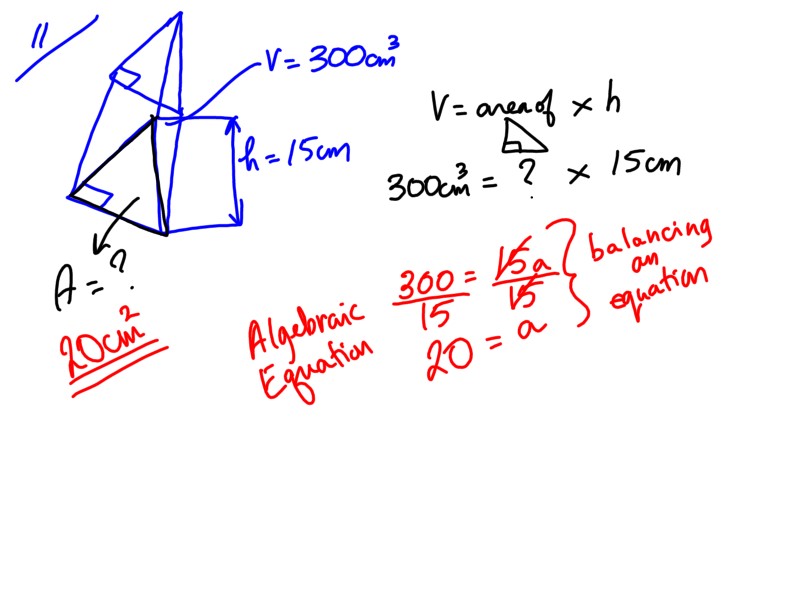 11
V = 300cm³
h = 15cm
A = ?
20cm²
V = area of × h
300cm³ = ? × 15cm
Algebraic
Equation
300/15 = 15a/15
20 = a
balancing
an
equation